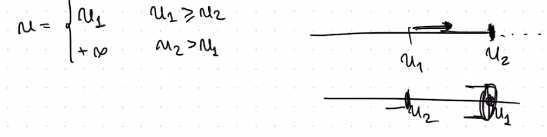 u = { u₁ u₁ ⩾ u₂
+ ∞ u₂ > u₁
u₁ u₂
u₂ u₁